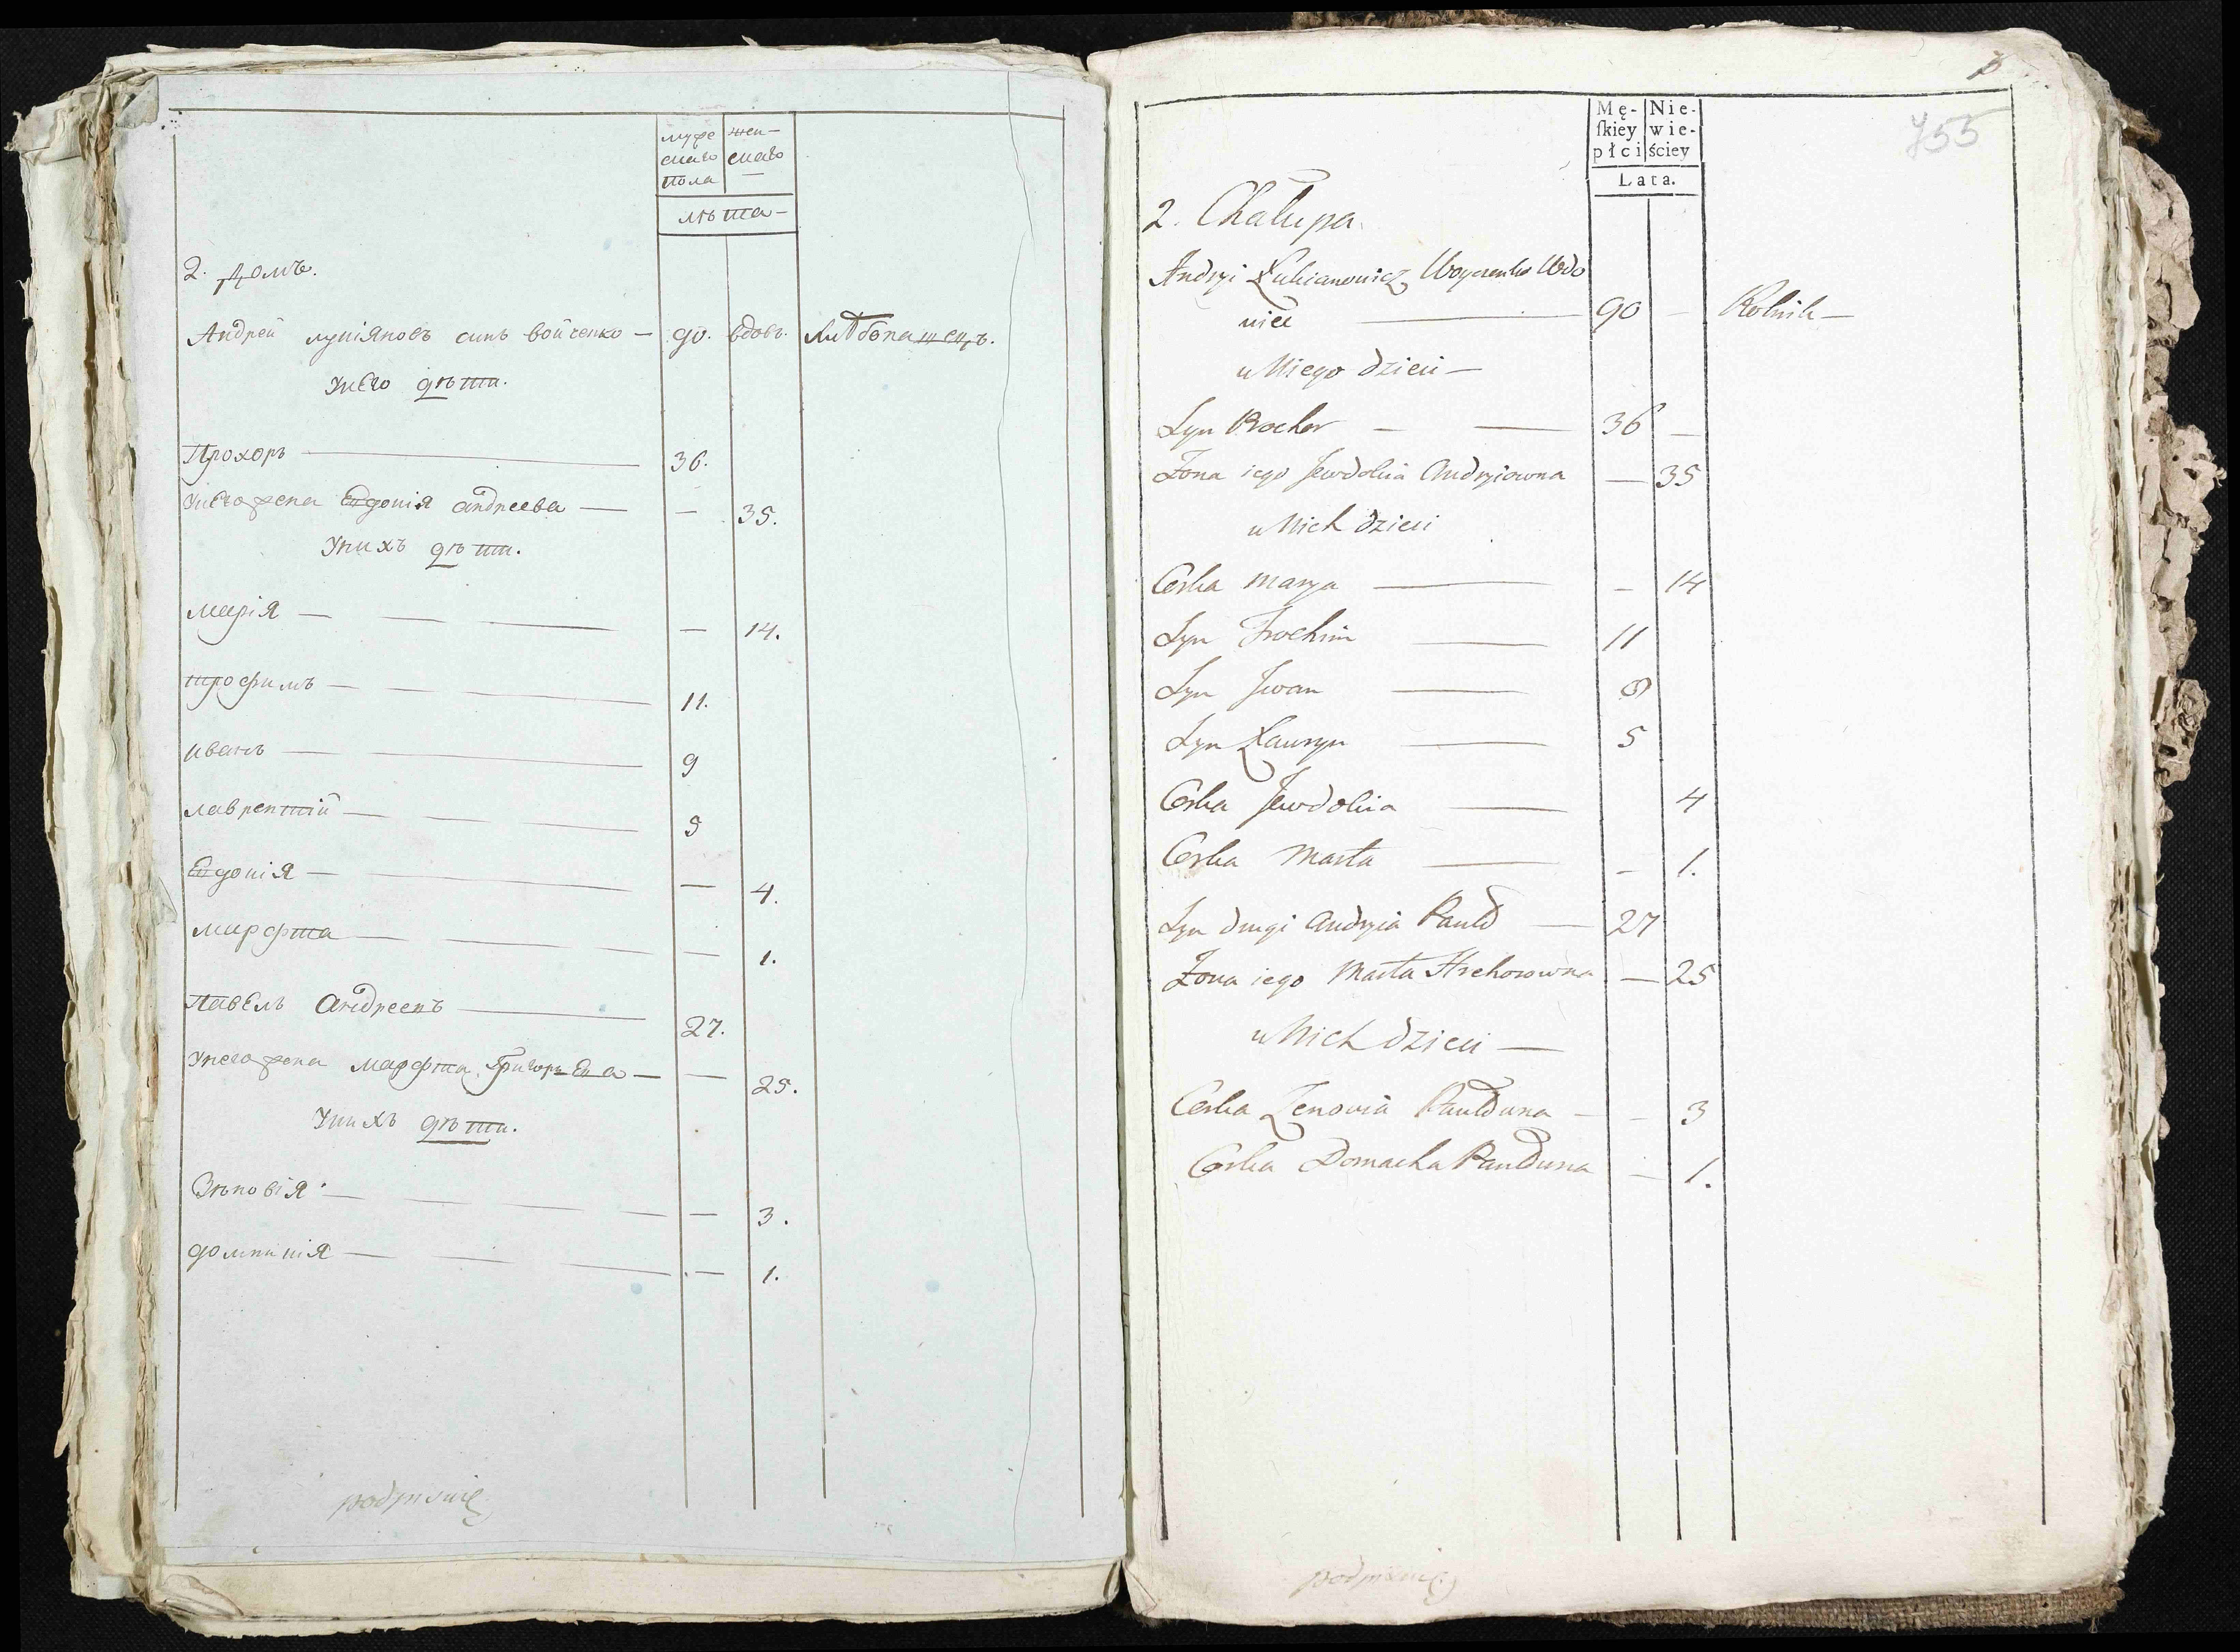 муже жен-
скаго скаго
пола
лѣта-
2. домъ.
Андрей лукіяновъ синъ войченко — 90. вдовъ. хлѣбопашецъ.
Унего дѣти.
Прохоръ — 36.
Унего жена Евдокія андреева — — 35.
Унихъ дѣти.
марія — — — — 14.
трофимъ — — — 11.
иванъ — — 9
лаврентій — — — 5
Евдокія — — — — 4.
марфта — — — — 1.
Павелъ андреевъ — 27.
Унего жена марфта григорьева — — 25.
Унихъ дѣти.
Зѣновія — — — — — 3.
домникія — — — — 1.
podpisuię
755
Mę- Nie-
ſkiey wie-
płci ściey
Lata.
2. Chałupa.
Andryi Łukianowicz Woyczenko Wdo
wiec — 90 — Rolnik —
u Niego dzieci —
Syn Prochor — — 36 —
Żona iego Jewdokia Andryiowna — 35
u Nich dzieci
Corka Marya — — 14
Syn Trochim — 11
Syn Jwan — 9
Syn Ławryn — 5
Corka Jewdokia — 4
Corka Marta — — 1.
Syn drugi Andryia Pawło — 27
Żona iego Marta Hrehorowna — 25
u Nich dzieci —
Corka Zenovia Pawłowna — — 3
Corka Domacha Pawłowna — 1.
podpisuię